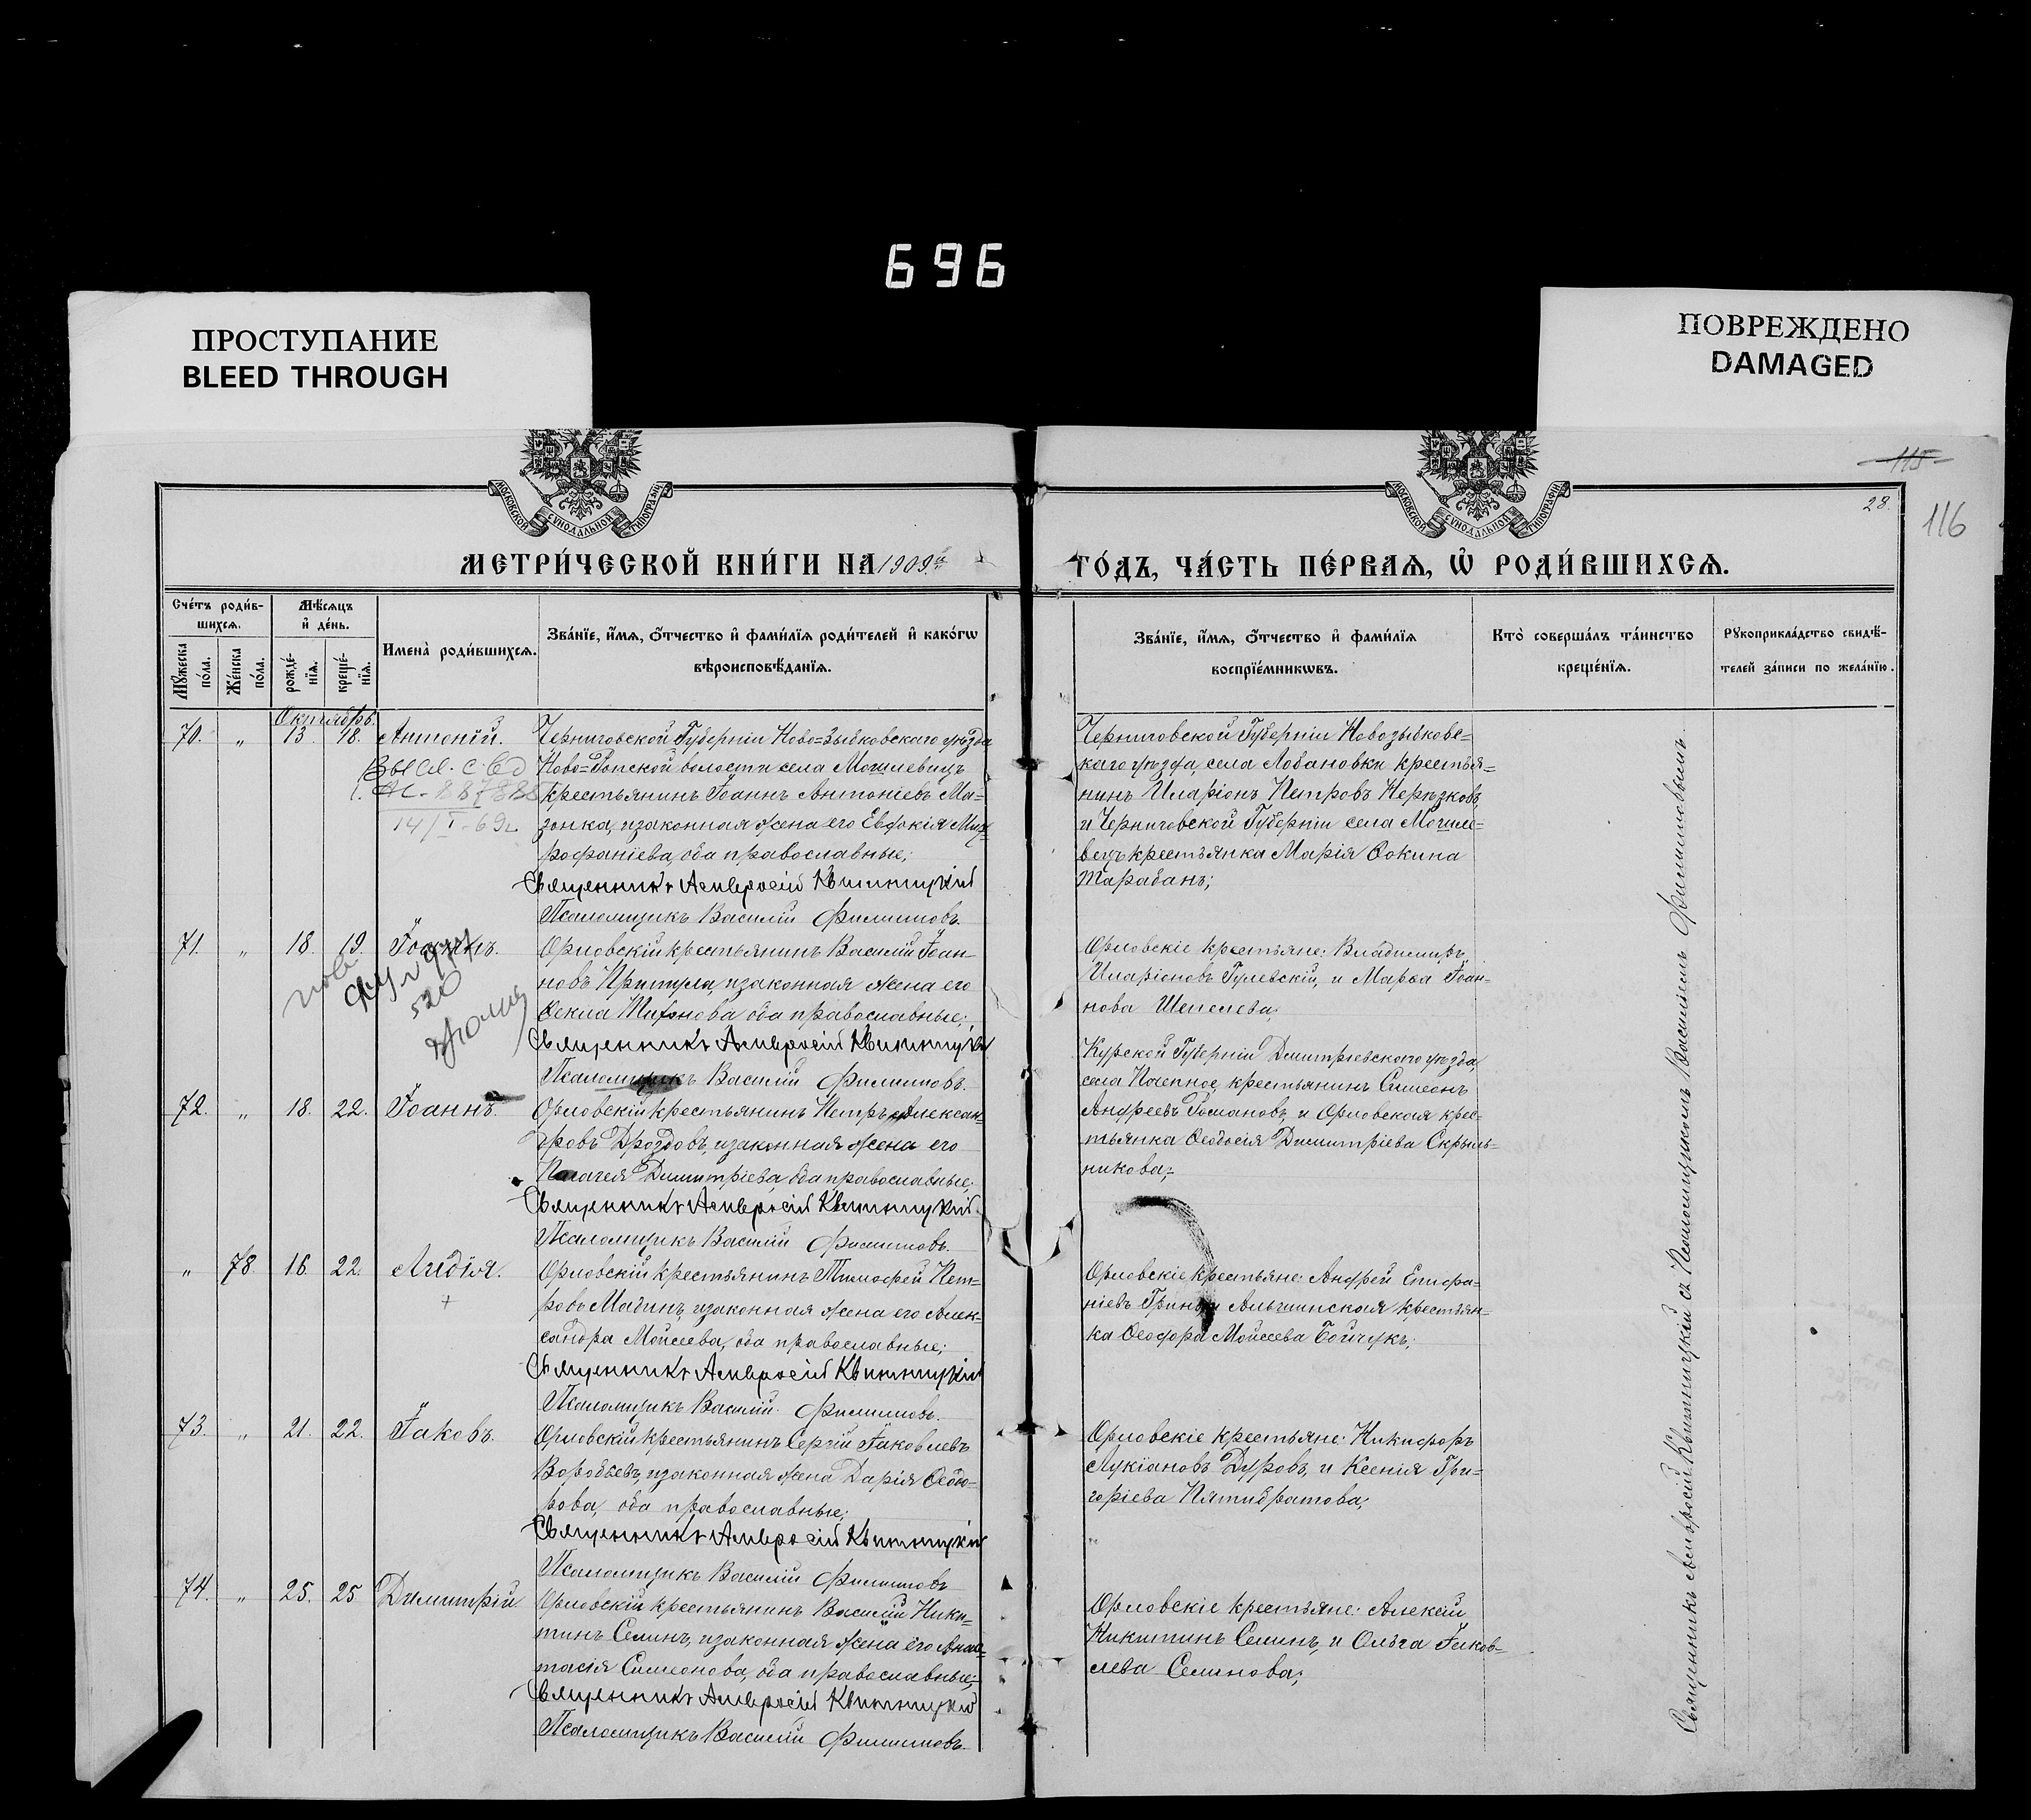 696
ПРОСТУПАНИЕ
BLEED THROUGH
ПОВРЕЖДЕНО
DAMAGED
МОСКОВСКОЙ СѴНОДАЛЬНОЙ ТИПОГРАФІИ
МОСКОВСКОЙ СѴНОДАЛЬНОЙ ТИПОГРАФІИ
115
28.
116
МЕТРИ́ЧЕСКОЙ КНИ́ГИ НА 1909й
ГО́ДЪ, ЧА́СТЬ ПЕ́РВАѦ, Ѡ҆ РОДИ́ВШИХСѦ.
Сче́тъ роди́в-
шихсѧ.
Мꙋ́жеска по́ла.
Же́нска по́ла.
Мѣ́сѧцъ
и҆ де́нь.
рожде́-
нїѧ.
креще́-
нїѧ.
Имена̀ роди́вшихсѧ.
Зва́нїе, и҆́мѧ, ѻ҆́тчество и҆ фами́лїѧ роди́телей и҆ како́гѡ
вѣроисповѣ́данїѧ.
Зва́нїе, и҆́мѧ, ѻ҆́тчество и҆ фами́лїѧ
воспрїе́мникѡвъ.
Кто̀ соверша́лъ та́инство
креще́нїѧ.
Рꙋкоприкла́дство свидѣ́-
телей за́писи по жела́нїю.
Октябрь.
70. „ 13. 18. Антоній.
Черниговской Губерніи Ново=Зыбковского уѣзда
Ново=Ропской волости села Могилевицъ
крестьянинъ Іоаннъ Антоніевъ Ма=
зонка, изаконная жена его Евдокія Мит=
рофаніева, оба православные;
Священникъ Амвросій Квитницкій
Псаломщикъ Василій Филиповъ.
Черниговской Губерніи Новозыбковс=
каго уѣзда, села Лобановки крестья=
нинъ Иларіонъ Петровъ Нерѣзковъ,
и Черниговской Губерніи села Могиле=
вецъ крестьянка Марія Фокина
Тарабанъ;
Выс. с-во
14/I-69г
71. „ 18. 19. Іоаннъ.
Орловскій крестьянинъ Василій Іоан-
новъ Притула, изаконная жена его
Фекла оба православные;
Священникъ Амвросій Квитницкій
Псаломщикъ Василій Филиповъ.
Орловскіе крестьяне: Владимиръ
Иларіоновъ Гулевскій, и Марѳа Іоан-
нова Шепелева;
520
72. „ 18. 22. Іоаннъ.
Орловскій крестьянинъ Петръ Алексан-
дровъ Дроздовъ, изаконная жена его
Пелагея Димитріева, оба православные;
Священникъ Амвросій Квитницкій.
Псаломщикъ Василій Филиповъ.
Курской Губерніи Дмитріевского уѣзда,
села крестьянинъ Симеонъ
Андреевъ Романовъ, и Орловская крес-
тьянка Ѳеодосія Димитріева Скрыль=
никова;
„ 78. 16. 22. Лидія.
Орловскій крестьянинъ Тимофей Пет=
ровъ Мадинъ, изаконная жена его Алек=
сандра Мойсеева, оба православные;
Священникъ Амвросій Квитницкій
Псаломщикъ Василій Филиповъ.
Орловскіе крестьяне: Андрей Епифа=
ніевъ Гринь, и Альгинская крестьян=
ка Ѳеодора Мойсеева Бойчукъ;
73. „ 21. 22. Іаковъ.
Орловскій крестьянинъ Сергій Іаковлевъ
Воробьевъ, изаконная жена Дарія Ѳеодо=
рова, оба православные;
Священникъ Амвросій Квитницкій
Псаломщикъ Василій Филиповъ
Орловскіе крестьяне: Никифоръ
Лукіановъ Дуровъ, и Ксенія Гри=
горіева Пятибратова;
74. „ 25. 25 Димитрій
Орловскій крестьянинъ Василій Ники=
тинъ Селинъ, изаконная жена его Анас=
тасія Симеонова, оба православные;
Священникъ Амвросій Квитницкій
Псаломщикъ Василій Филиповъ.
Орловскіе крестьяне: Алексій
Никитинъ Селинъ, и Ольга Іаков=
лева Селинова;
Священникъ Амвросій Квитницкій съ Псаломщикомъ Василіемъ Филиповымъ.